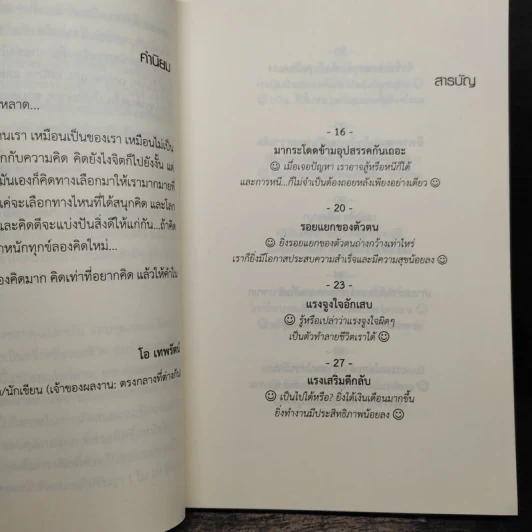 คำนิยม
หลาด...
นเรา เหมือนเป็นของเรา เหมือนไม่เป็น
กกับความคิด คิดยังไงจิตก็ไปยังงั้น แต่
มันเองก็คิดทางเลือกมาให้เรามากมายที่
ค่จะเลือกทางไหนที่ได้สนุกคิด และโลก
และคิดดีจะแบ่งปันสิ่งดีให้แก่กัน...ถ้าคิด
หนักทุกข์ลองคิดใหม่...
องคิดมาก คิดเท่าที่อยากคิด แล้วให้คำใน
โอ เทพรัตน์
/นักเขียน (เจ้าของผลงาน: ตรงกลางที่ต่างกัน
สารบัญ
- 16 -
มากระโดดข้ามอุปสรรคกันเถอะ
☺ เมื่อเจอปัญหา เราอาจสู้หรือหนีก็ได้
และการหนี...ก็ไม่จำเป็นต้องถอยหลังเพียงอย่างเดียว ☺
- 20 -
รอยแยกของตัวตน
☺ ยิ่งรอยแยกของตัวตนถ่างกว้างเท่าใหร่
เราก็ยิ่งมีโอกาสประสบความสำเร็จและมีความสุขน้อยลง ☺
- 23 -
แรงจูงใจอักเสบ
☺ รู้หรือเปล่าว่าแรงจูงใจผิดๆ
เป็นตัวทำลายชีวิตเราได้ ☺
- 27 -
แรงเสริมตีกลับ
☺ เป็นไปได้หรือ? ยิ่งได้เงินเดือนมากขึ้น
ยิ่งทำงานมีประสิทธิภาพน้อยลง ☺